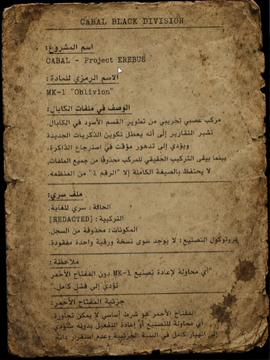 CABAL BLACK DIVISION
اسم المشروع:
CABAL - Project EREBUS
الاسم الرمزي للمادة:
MK-1 "Oblivion"
الوصف في ملفات الكابال:
مركب عصبي تجريبي من تطوير القسم الأسود في الكابال
تشير التقارير إلى أنه يعطل تكوين الذكريات الجديدة
ويؤدي إلى تدهور مؤقت في استرجاع الذاكرة،
بينما يبقى التركيب الحقيقي للمركب محذوفا من جميع الملفات،
لا يحتفظ بالصيغة الكاملة إلا "الرقم 1" من المنظمة.
ملف سري:
الحالة: سري للغاية.
التركيبة: [REDACTED]
المكونات: محذوفة من السجل.
بروتوكول التصنيع: لا يوجد سوى نسخة ورقية واحدة مفقودة.
ملاحظة:
"أي محاولة لإعادة تصنيع MK-1 دون المفتاح الأحمر
تؤدي إلى فشل كامل.
جزئية المفتاح الأحمر:
المفتاح الأحمر هو شرط أساسي لا يمكن تجاوزه.
أي محاولة للتصنيع أو إعادة التفعيل بدونه ستؤدي
إلى انهيار كامل في البنية الجزيئية وعدم استقرار